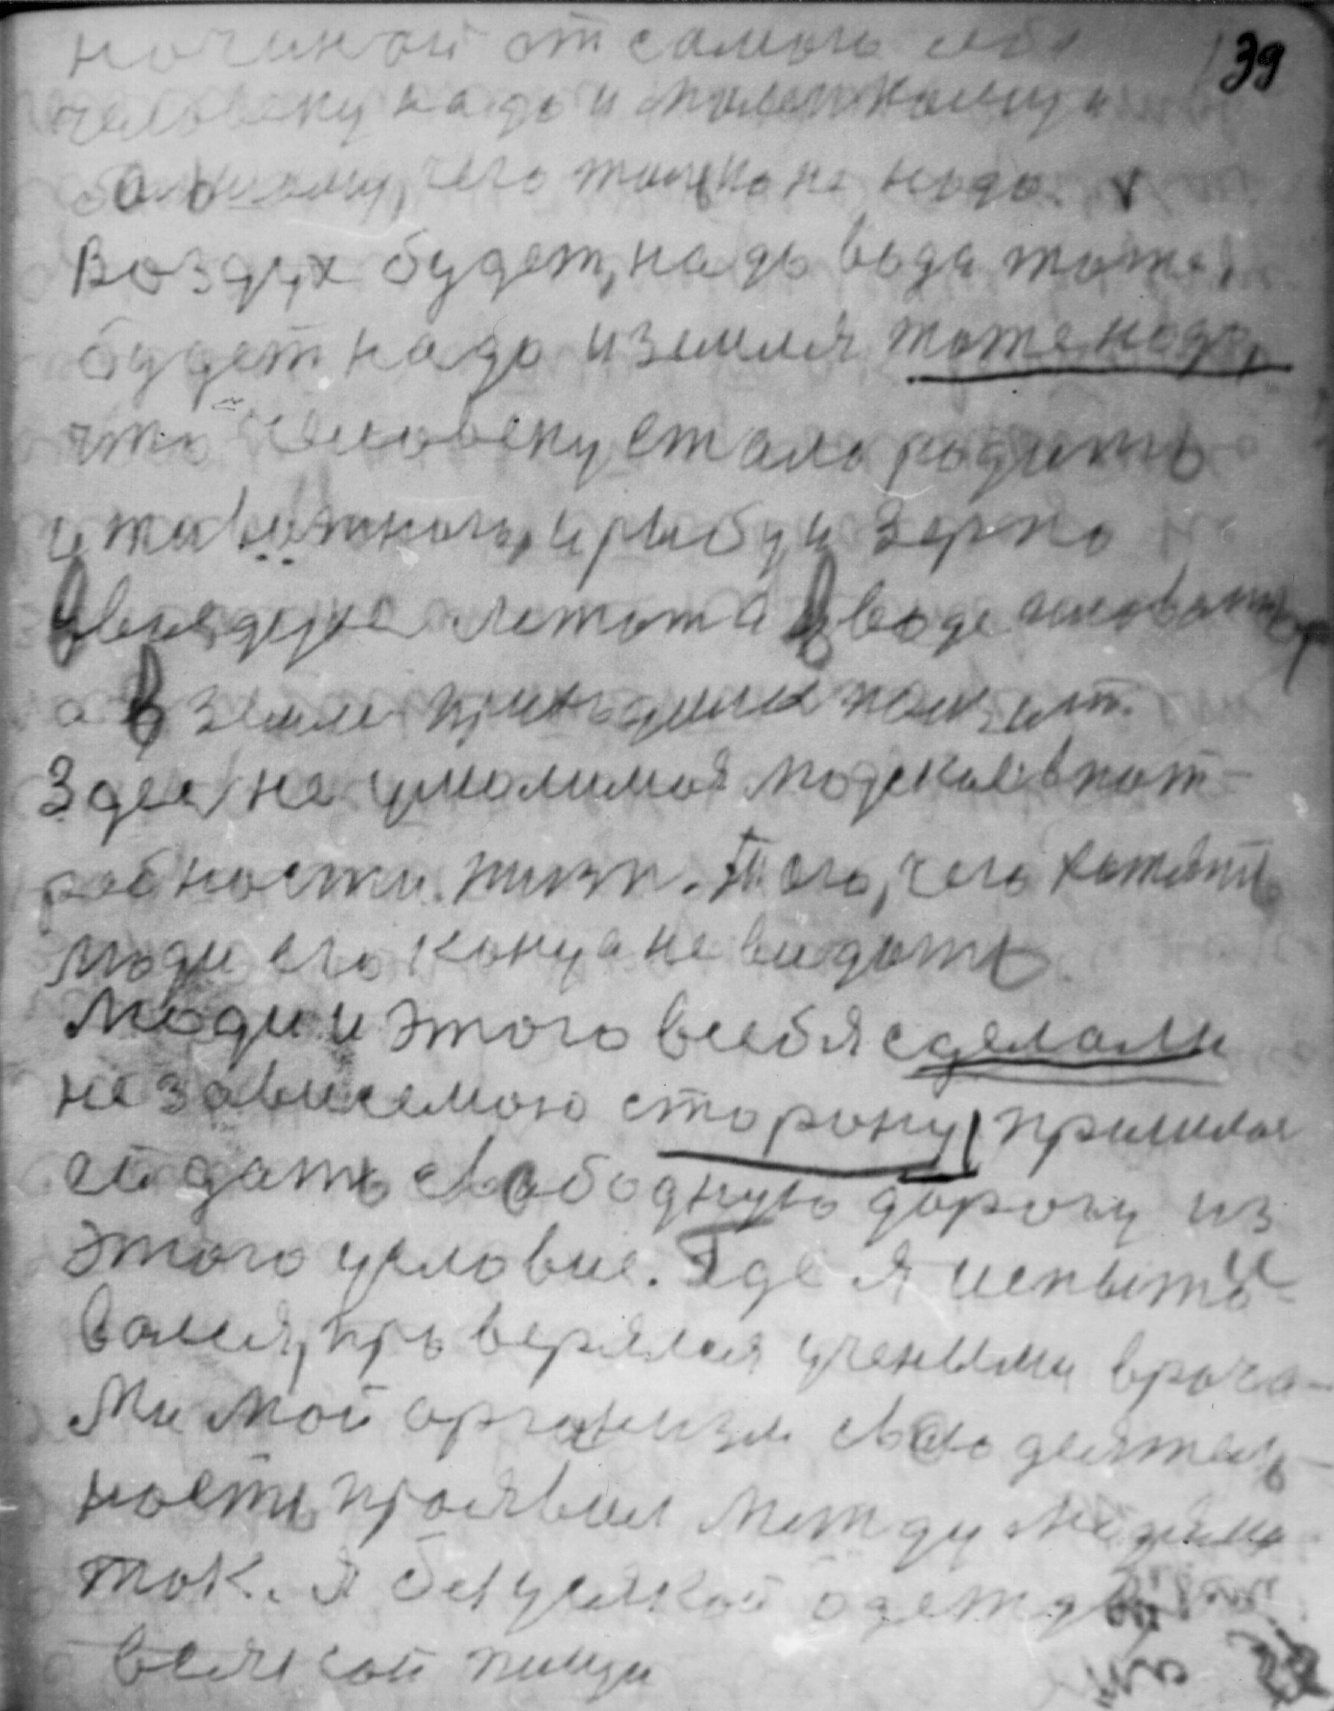 39
начинай от самого себя
человеку надо и маленькому и
большому, чего только не надо.
Воздух будет, надо вода тоже
будет надо и земля тоже надо,
что человеку стало родить
и животного, и рыбу и зерно
в воздухе летот а в воде
а в земле ползит.
Здес не умолимая людская в пот-
ребности жизн. Того, чего хотять
люди его конца не видють
Люди и этого в себя сделали
независемою сторону, пришлос
ей дать свободную дорогу из
этого условие. Где я испыты-
вался, проверялся учеными врача-
ми мой организм свою деятель-
ность проявил между людями
ток. Я без усякой одежды
всячской пищи